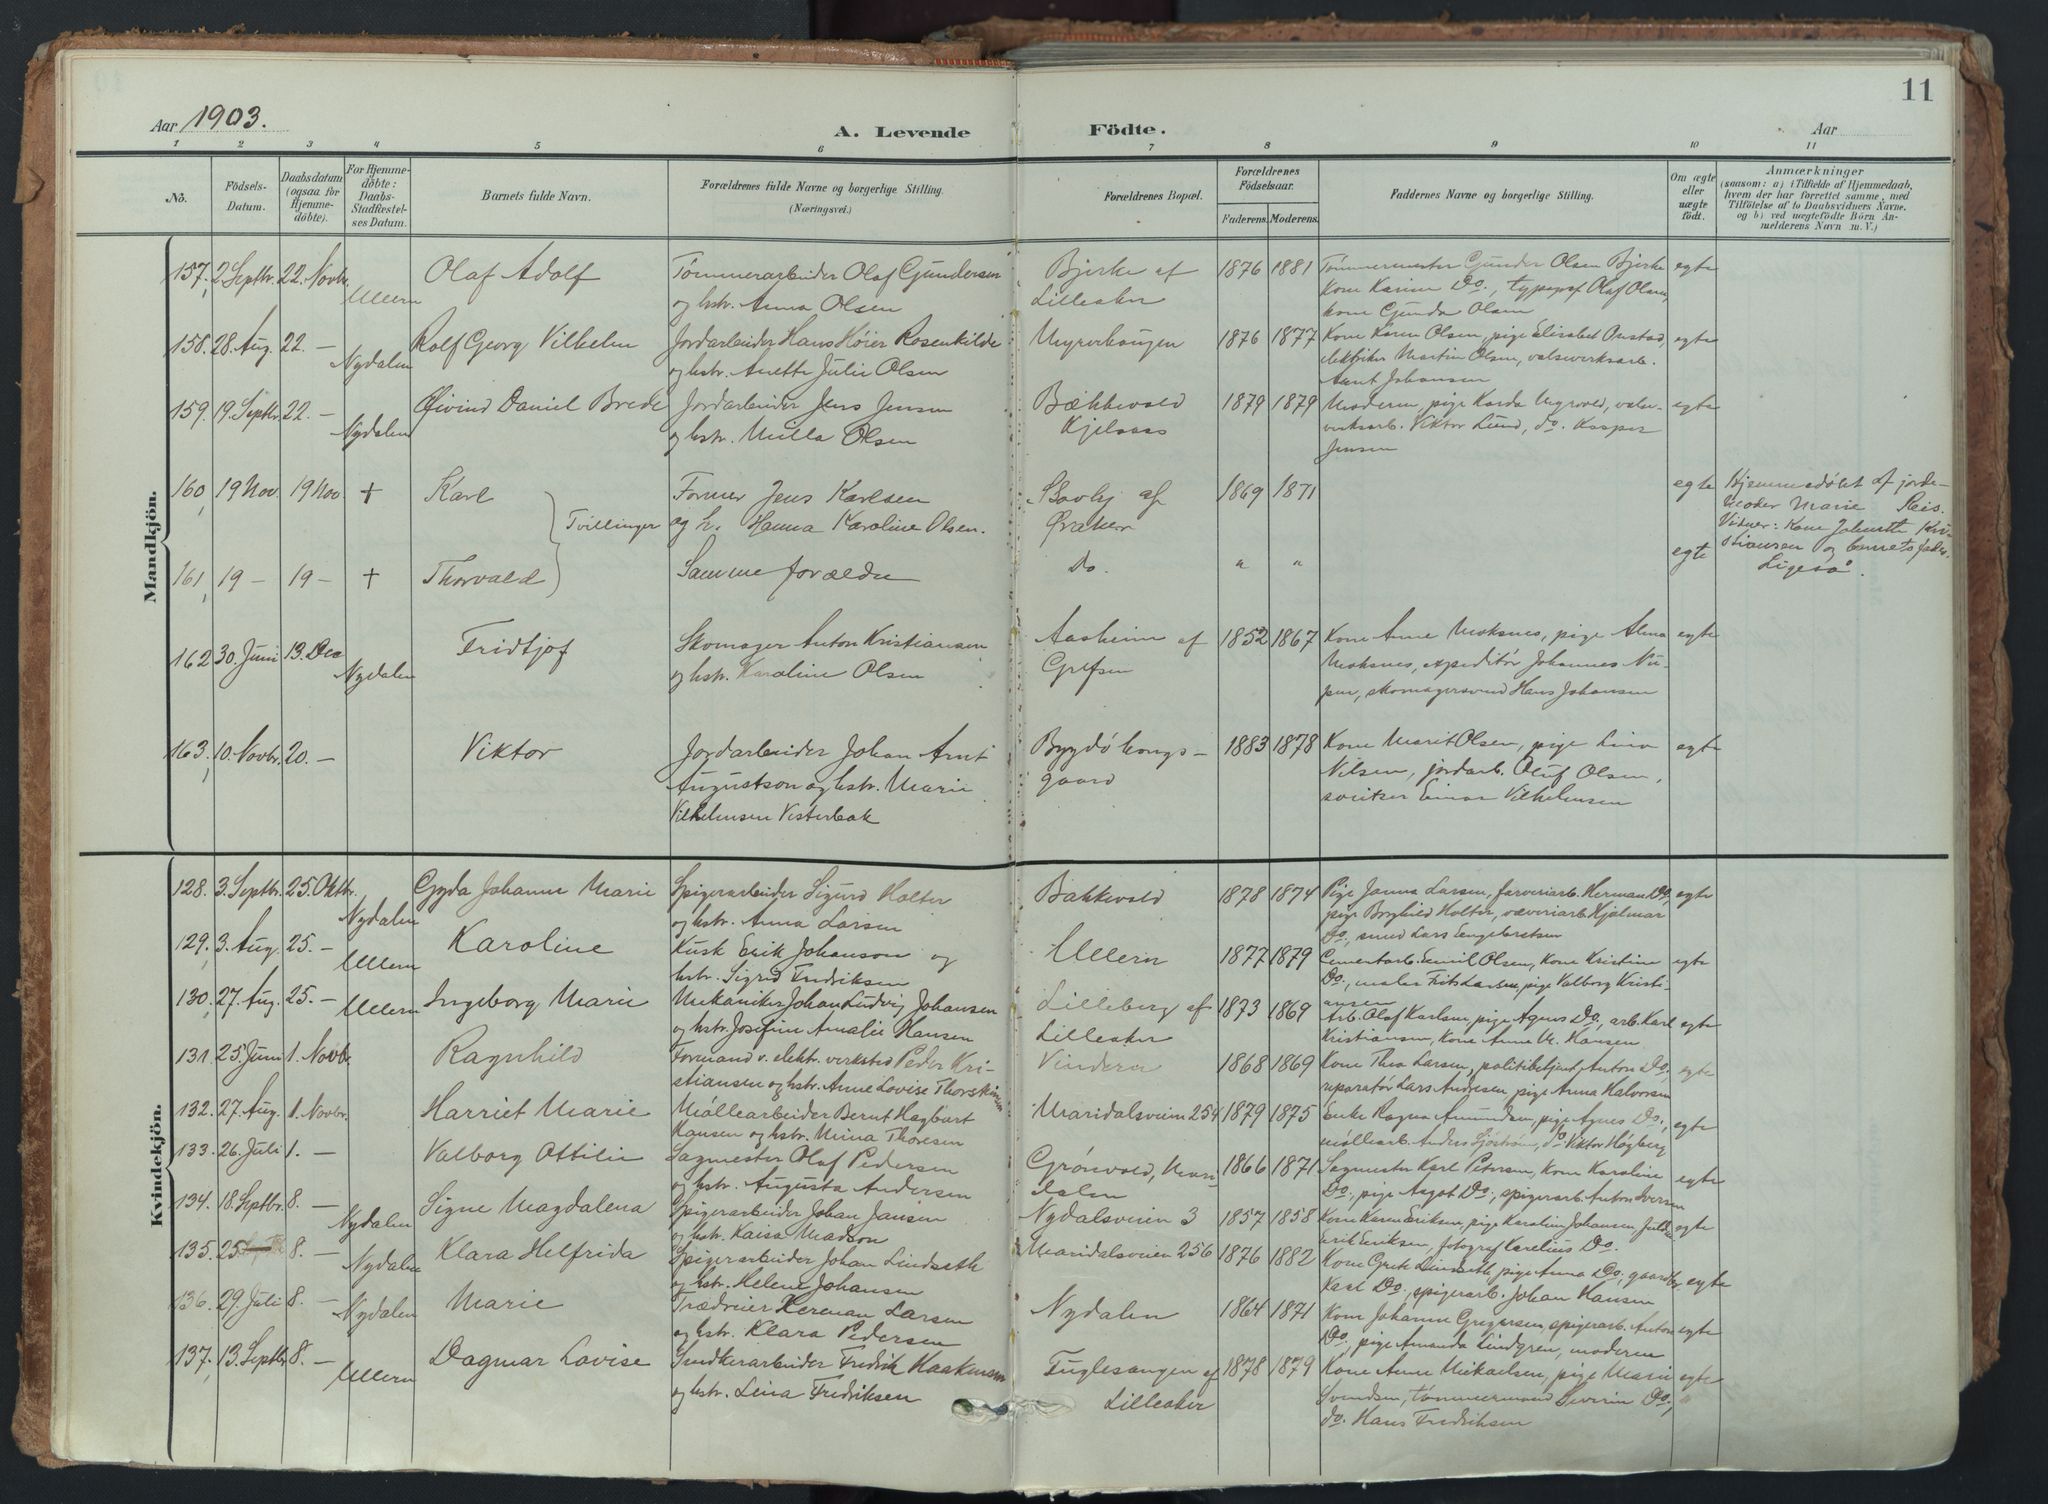 11
Aar 1903.
A. Levende Födte.
Aar
1 2 3 4 5 6 7 8 9 10 11
No.
Födsels-
Datum.
Daabsdatum
(ogsaa for
Hjemme-
döbte).
For Hjemme-
döbte:
Daabs-
Stadfæstel-
ses Datum.
Barnets fulde Navn.
Forældrenes fulde Navne og borgerlige Stilling.
(Næringsvei.)
Forældrenes Bopæl.
Forældrenes
Födselsaar.
Faderens. Moderens.
Faddernes Navne og borgerlige Stilling.
Om ægte
eller
uægte
födt.
Anmærkninger
(saasom: a) i Tilfælde af Hjemmedaab,
hvem der har forrettet samme, med
Tilföielse af to Daabsvidners Navne.
og b) ved uægtefödte Börn An-
melderens Navn m. V.)
Mandkjön.
157, 2 Septbr. 22. Novbr. Ullern Olaf Adolf
Tømmerarbeider Olaf Gundersen
og hstr. Anna Olsen
Bjerke af
Lilleaker
1876 1881
Tømmermester Gunder Olsen Bjerke
Kone Karine Do., typograf Olaf Olsen,
kone Gunda Olsen
egte
158. 28. Aug. 22. — Nydalen Rolf Georg Vilhelm
Jordarbeider Hans Høier Rosenkilde
og hstr. Anette Julie Olsen
Myrerhaugen
1876 1877
Kone Karen Olsen, pige Elisabet Onstad,
Martin Olsen, valseverksarb.
Arnt Johansen
egte
159. 19. Septbr. 22. — Nydalen Øivind Daniel Brede
Jordarbeider Jens Jensen
og hstr. Milla Olsen
Bækkevold
Kjelsaas
1879 1879
Moderen, pige Karda Myrvold, valse-
verksarb. Viktor Lund, do. Kasper
Jensen
egte
160, 19 Nov. 19 Nov. + Karl
Tvillinger
Former Jens Karlsen
og h. Hanna Karoline Olsen.
af
Øraker
1869 1871
egte
Hjemmedøbt af jorde-
moder Marie Reis.
Vidner: Kone Johanette Kri-
stiansen og barnets fader.
161, 19 — 19 — + Thorvald
Samme forældre
Do.
" "
egte
Ligesaa.
162 30. Juni 13. Dec Nydalen Fridtjof
Skomager Anton Kristiansen
og hstr. Karoline Olsen
Aasheim af
Grefsen
1852 1867
Kone Anne Moksnes, pige Alma
Moksnes, expeditør Johannes Nu-
pen, skomagersvend Hans Johansen
egte
163, 10. Novbr. 20. — Viktor
Jordarbeider Johan Arnt
Augustson og hstr. Marie
Vilhelmsen Vesterbak
Bygdø kongs-
gaard
1883 1878
Kone Marit Olsen, pige Lina
Nilsen, jordarb. Oluf Olsen,
sveitser Einar Vilhelmsen
egte
Kvindekjön.
128. 3. Septbr. 25. Oktbr. Nydalen Gyda Johanne Marie
Spigerarbeider Sigurd Holter
og hstr. Anna Larsen
Bakkevold
1878 1874
Pige Janna Larsen, farveriarb. Herman Do,
pige Borghild Holter, væveriarb. Hjalmar
Do., smed Lars Engebretsen
egte
129, 3. Aug. 25. — Ullern Karoline
Kusk Erik Johanson og
hstr. Sigrid Fredriksen
Ullern
1877 1879
Cementarb. Emil Olsen, Kone Kristine
Do., maler Frits Larsen, pige Valborg Kristi-
ansen
egte
130, 27. Aug. 25. — Ullern Ingeborg Marie
Mekaniker Johan Ludvig Johansen
og hstr. Josefine Amalie Hansen
Lilleberg af
Lilleaker
1873 1869
Arb. Olaf Karlsen, pige Agnes Do, arb. Karl
Kristiansen, Kone Anne M. Hansen
egte
131. 25. Juni 1. Novbr. Ragnhild
Formand v. elektr. verksted Peder Kri-
stiansen og hstr. Anne Lovise Thorskinsen
Vinderen
1868 1869
Kone Thea Larsen, politibetjent Anton Do,
reparatør Lars Andresen, pige Anna Halvorsen
egte
132. 27. Aug. 1. Novbr. Harriet Marie
Møllearbeider Bernt Hagbart
Hansen og hstr. Mina Thoresen
Maridalsveien 254
1879 1875
Enke Ragna Amundsen, pige Agnes Do,
møllearb. Anders Sjøstrøm, do Viktor Høgberg
egte
133. 26. Juli 1. — Valborg Ottilie
Sagmester Olaf Pedersen
og hstr. Augusta Andersen
Grønvold, Mari-
dalen
1866 1871
Sagmester Karl Petersen, Kone Karoline
Do., pige Aagot Do., spigerarb. Anton Iversen
egte
134. 18. Septbr. 8. — Nydalen Signe Magdalena
Spigerarbeider Johan Jansen
og hstr. Kaisa Madson
Nydalsveien 3
1857 1858
Kone Karen Eriksen, pige Karoline Johansen,
Erik Eriksen, fotograf Karelius Do.
egte
135. 25. 8. — Nydalen Klara Helfrida
Spigerarbeider Johan Lindseth
og hstr. Helene Johansen
Maridalsveien 256
1876 1882
Kone Grete Lindseth, pige Anna Do,
Karl Do., spigerarb. Johan Hansen
egte
136. 29. Juli 8. — Nydalen Marie
Trædreier Herman Larsen
og hstr. Klara Pedersen
Nydalen
1864 1871
Kone Johanne Gregersen, spigerarb. Anton
Do., pige Amanda Lindgren, moderen
egte
137, 13. Septbr. 8. — Ullern Dagmar Lovise
Snedkerarbeider Fredrik Haakensen
og hstr. Lina Fredriksen
Fuglesangen af
Lilleaker
1878 1879
Kone Anne Mikaelsen, pige Marie
Svendsen, tømmermand Severin Do,
do. Hans Fredriksen
egte
"